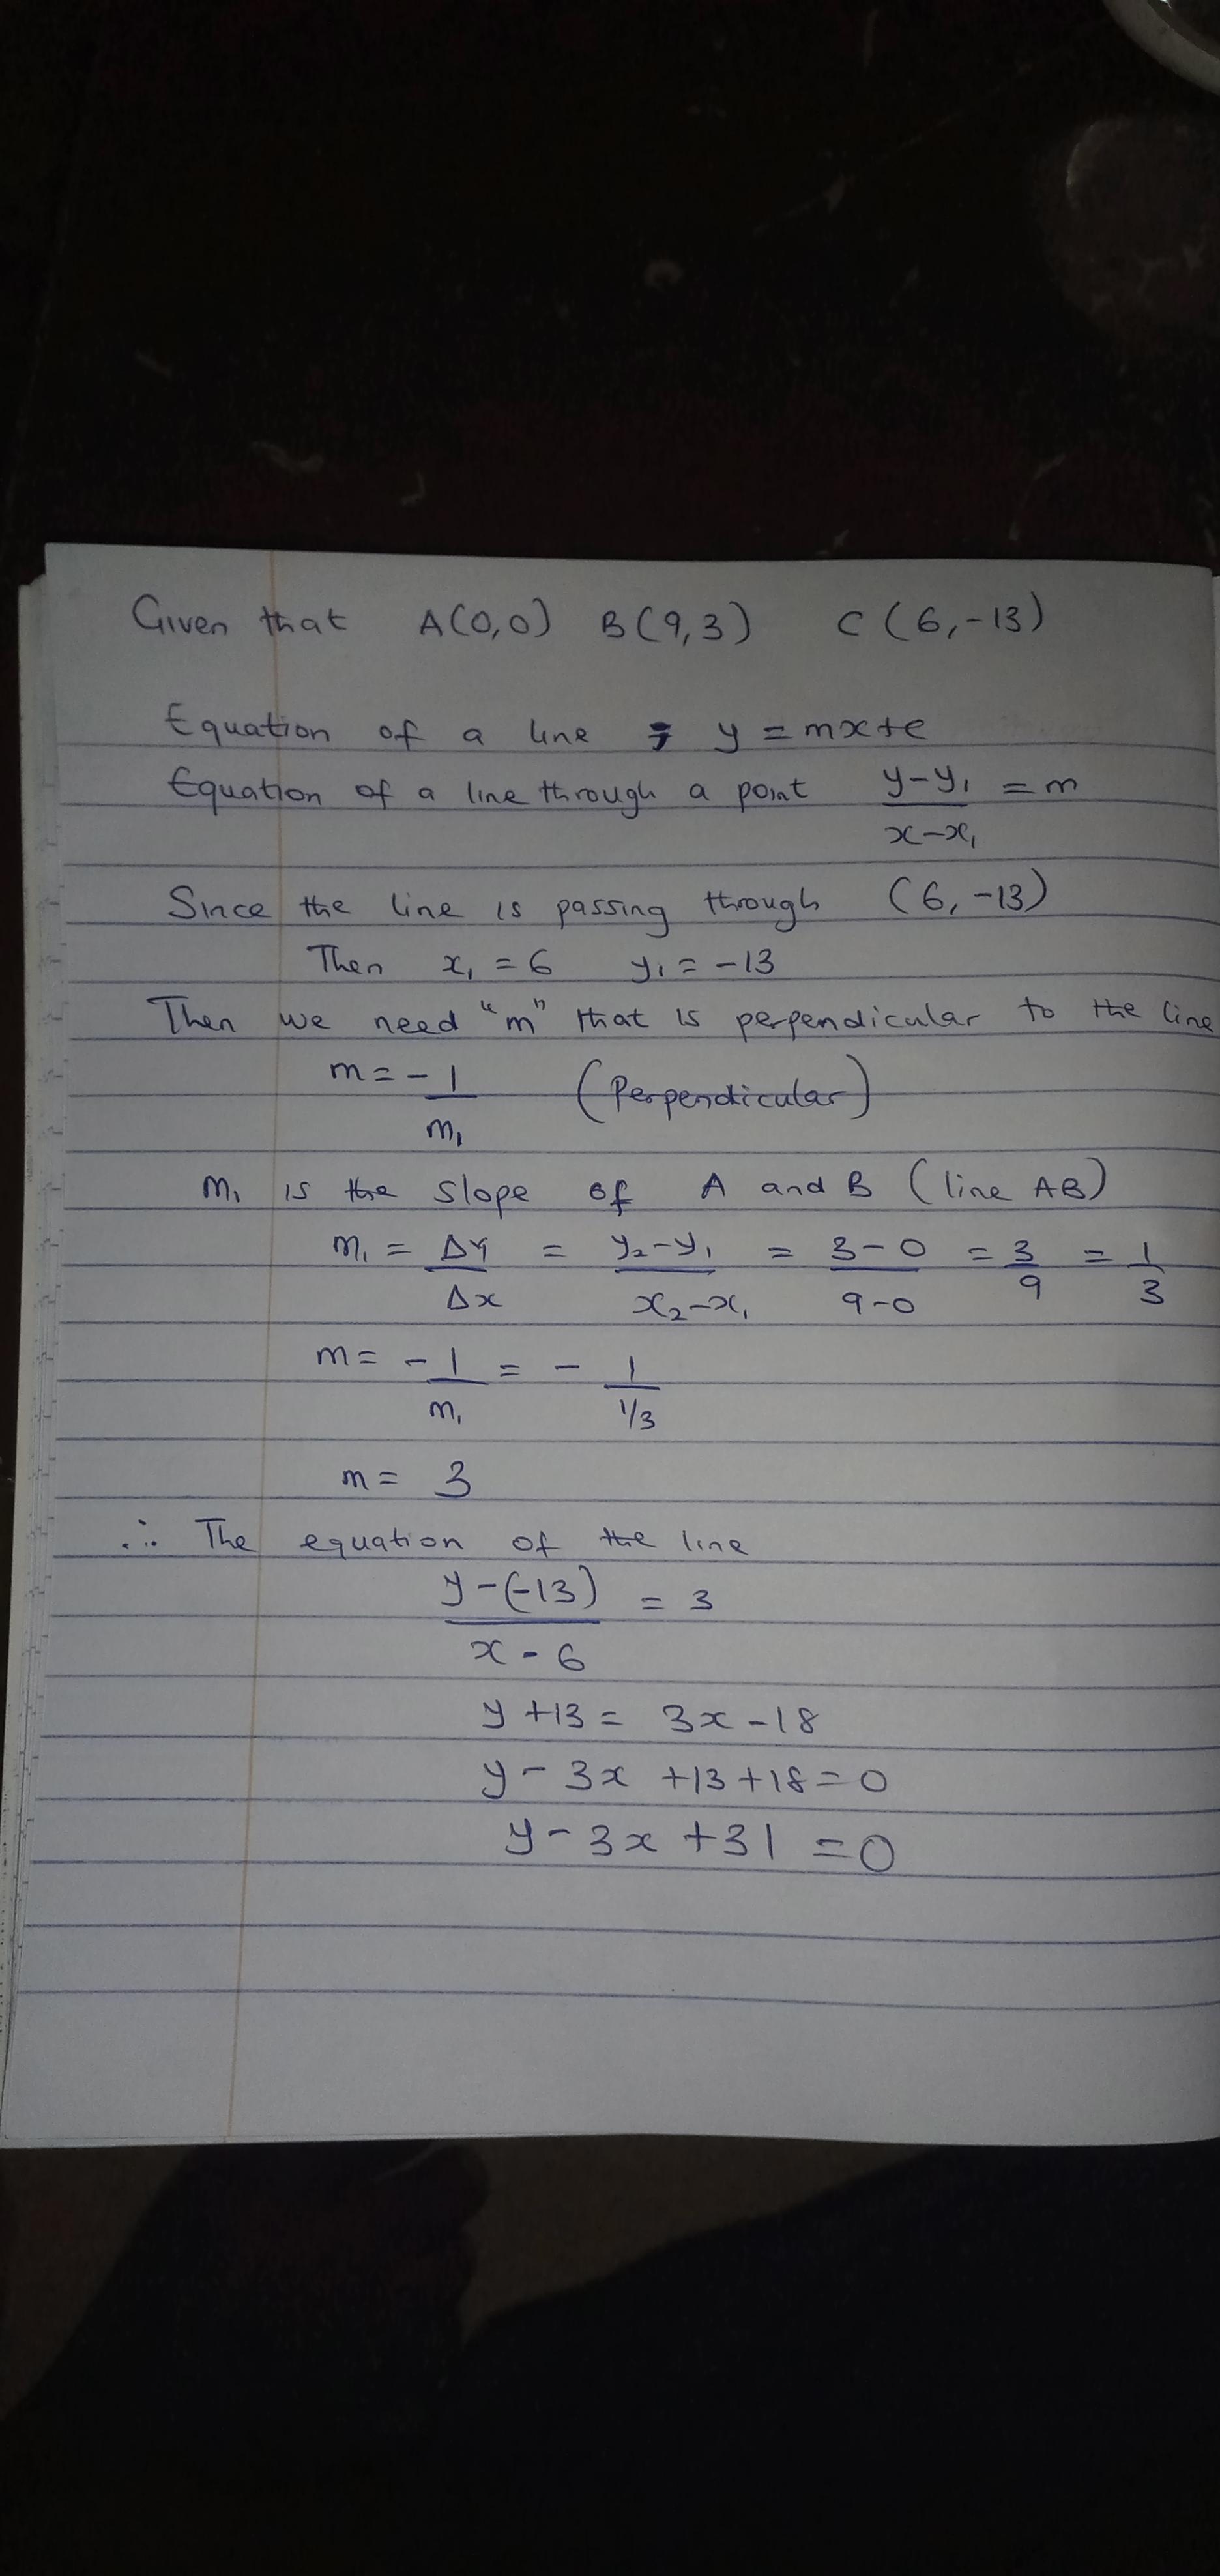 Given that A(0,0) B(9,3) C(6,-13)
Equation of a line ; y = mx+c
Equation of a line through a point y-y₁/x-x₁ = m
Since the line is passing through (6,-13)
Then x₁ = 6 y₁ = -13
Then we need "m" that is perpendicular to the line
m = -1/m₁ (Perpendicular)
m₁ is the slope of A and B (line AB)
m₁ = Δy/Δx = y₂-y₁/x₂-x₁ = 3-0/9-0 = 3/9 = 1/3
m = -1/m₁ = - 1/1/3
m = 3
∴ The equation of the line
y-(-13)/x-6 = 3
y+13 = 3x-18
y-3x+13+18=0
y-3x+31=0